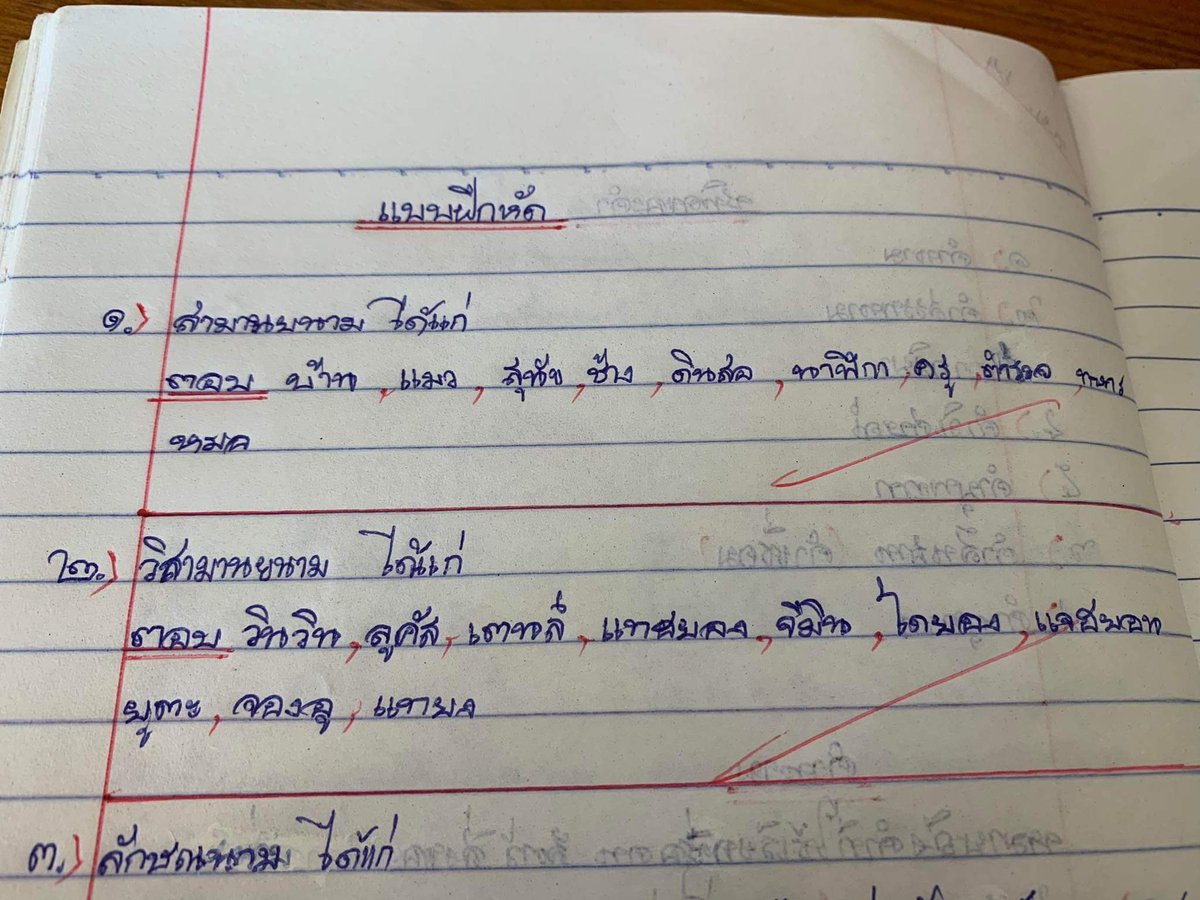 แบบฝึกหัด
๑.) สามานยนาม ได้แก่
ตอบ บ้าน, แมว, สุนัข, ช้าง, ดินสอ, นาฬิกา, ครู, ตำรวจ, ทหาร
หมอ
๒.) วิสามานยนาม ได้แก่
ตอบ วินวิน, ลูคัส, เตนล์, แทฮยอง, จีมิน, โดยอง, แจฮยอน
ยูตะ, จองอู, แทยง
๓.) ลักษณนาม ได้แก่